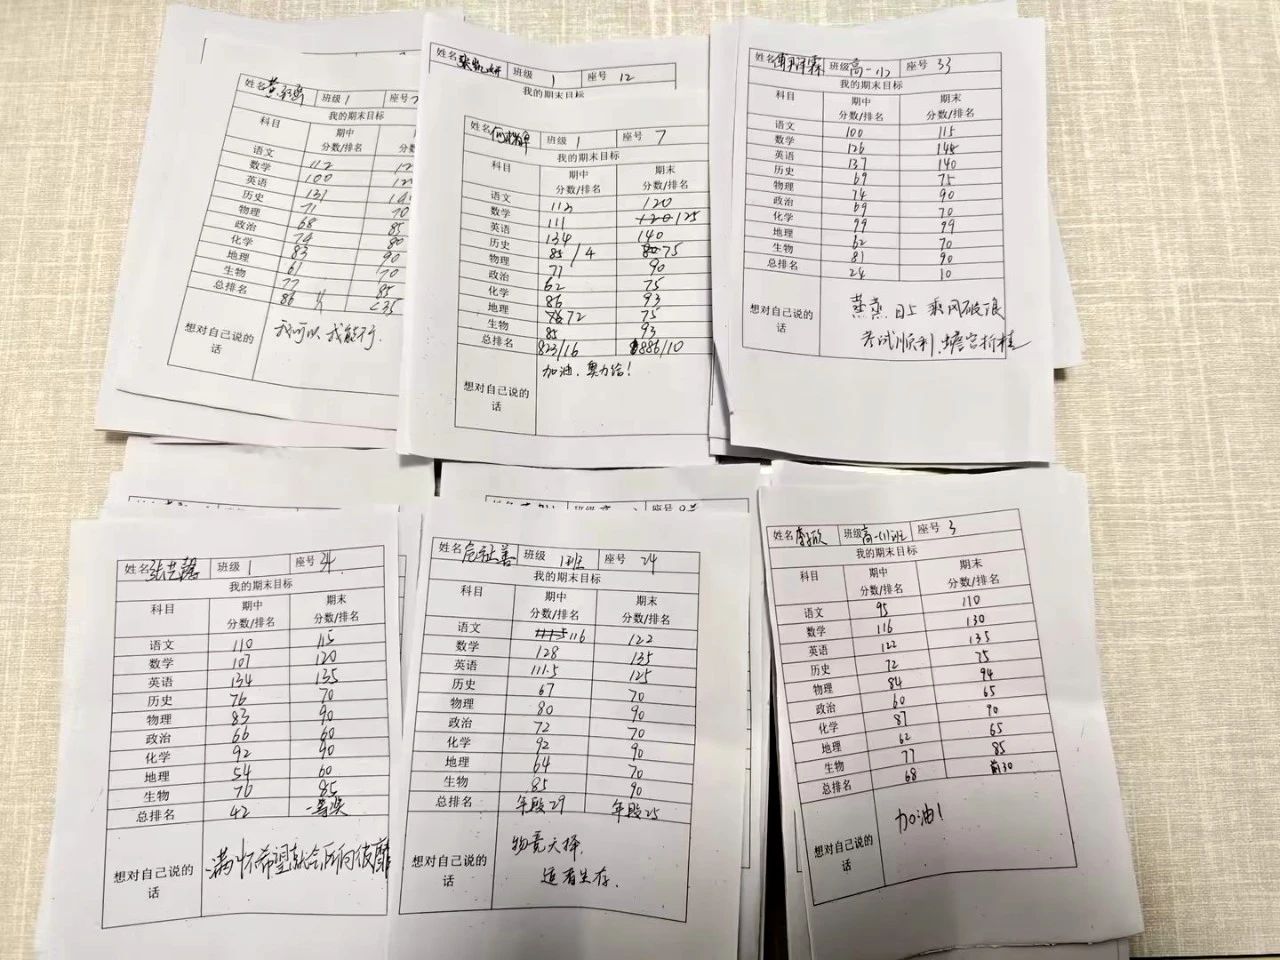 姓名 班级 1 座号
我的期末目标
科目 期中 分数/排名 分数
语文 112
数学 100
英语 131
历史 71 70
物理 68 85
政治 74 80
化学 83 90
地理 61 70
生物 77 85
总排名 86 <35
想对自己说的话 我可以 我能行.
姓名 班级 1 座号 12
我的期末目标
姓名 班级 1 座号 7
我的期末目标
科目 期中 分数/排名 期末 分数/排名
语文 112 120
数学 111 125
英语 134 140
历史 85/4 75
物理 77 90
政治 62 75
化学 86 93
地理 72 75
生物 85 93
总排名 823/16 886/10
想对自己说的话 加油,奥力给!
姓名 班级 高一 座号 33
我的期末目标
科目 期中 分数/排名 期末 分数/排名
语文 100 115
数学 126 148
英语 137 140
历史 69 75
物理 74 90
政治 69 70
化学 99 99
地理 62 70
生物 81 90
总排名 24 10
想对自己说的话 蒸蒸日上 乘风破浪
考试顺利,蟾宫折桂
姓名 班级 1 座号
我的期末目标
科目 期中 分数/排名 期末 分数/排名
语文 110 115
数学 107 120
英语 134 135
历史 76 70
物理 83 90
政治 66 60
化学 92 90
地理 54 60
生物 76 85
总排名 42 一等奖
想对自己说的话 满怀希望就会所向披靡
姓名 班级 1班 座号 24
我的期末目标
科目 期中 分数/排名 期末 分数/排名
语文 116 122
数学 128 135
英语 111.5 125
历史 67 70
物理 80 90
政治 72 70
化学 92 90
地理 64 70
生物 85 90
总排名 年段29 年段25
想对自己说的话 物竞天择
适者生存.
姓名 李欣 班级 高一(1)班 座号 3
我的期末目标
科目 期中 分数/排名 期末 分数/排名
语文 95 110
数学 116 130
英语 122 135
历史 72 75
物理 84 94
政治 60 65
化学 87 90
地理 62 65
生物 77 85
总排名 68 前30
想对自己说的话 加油!